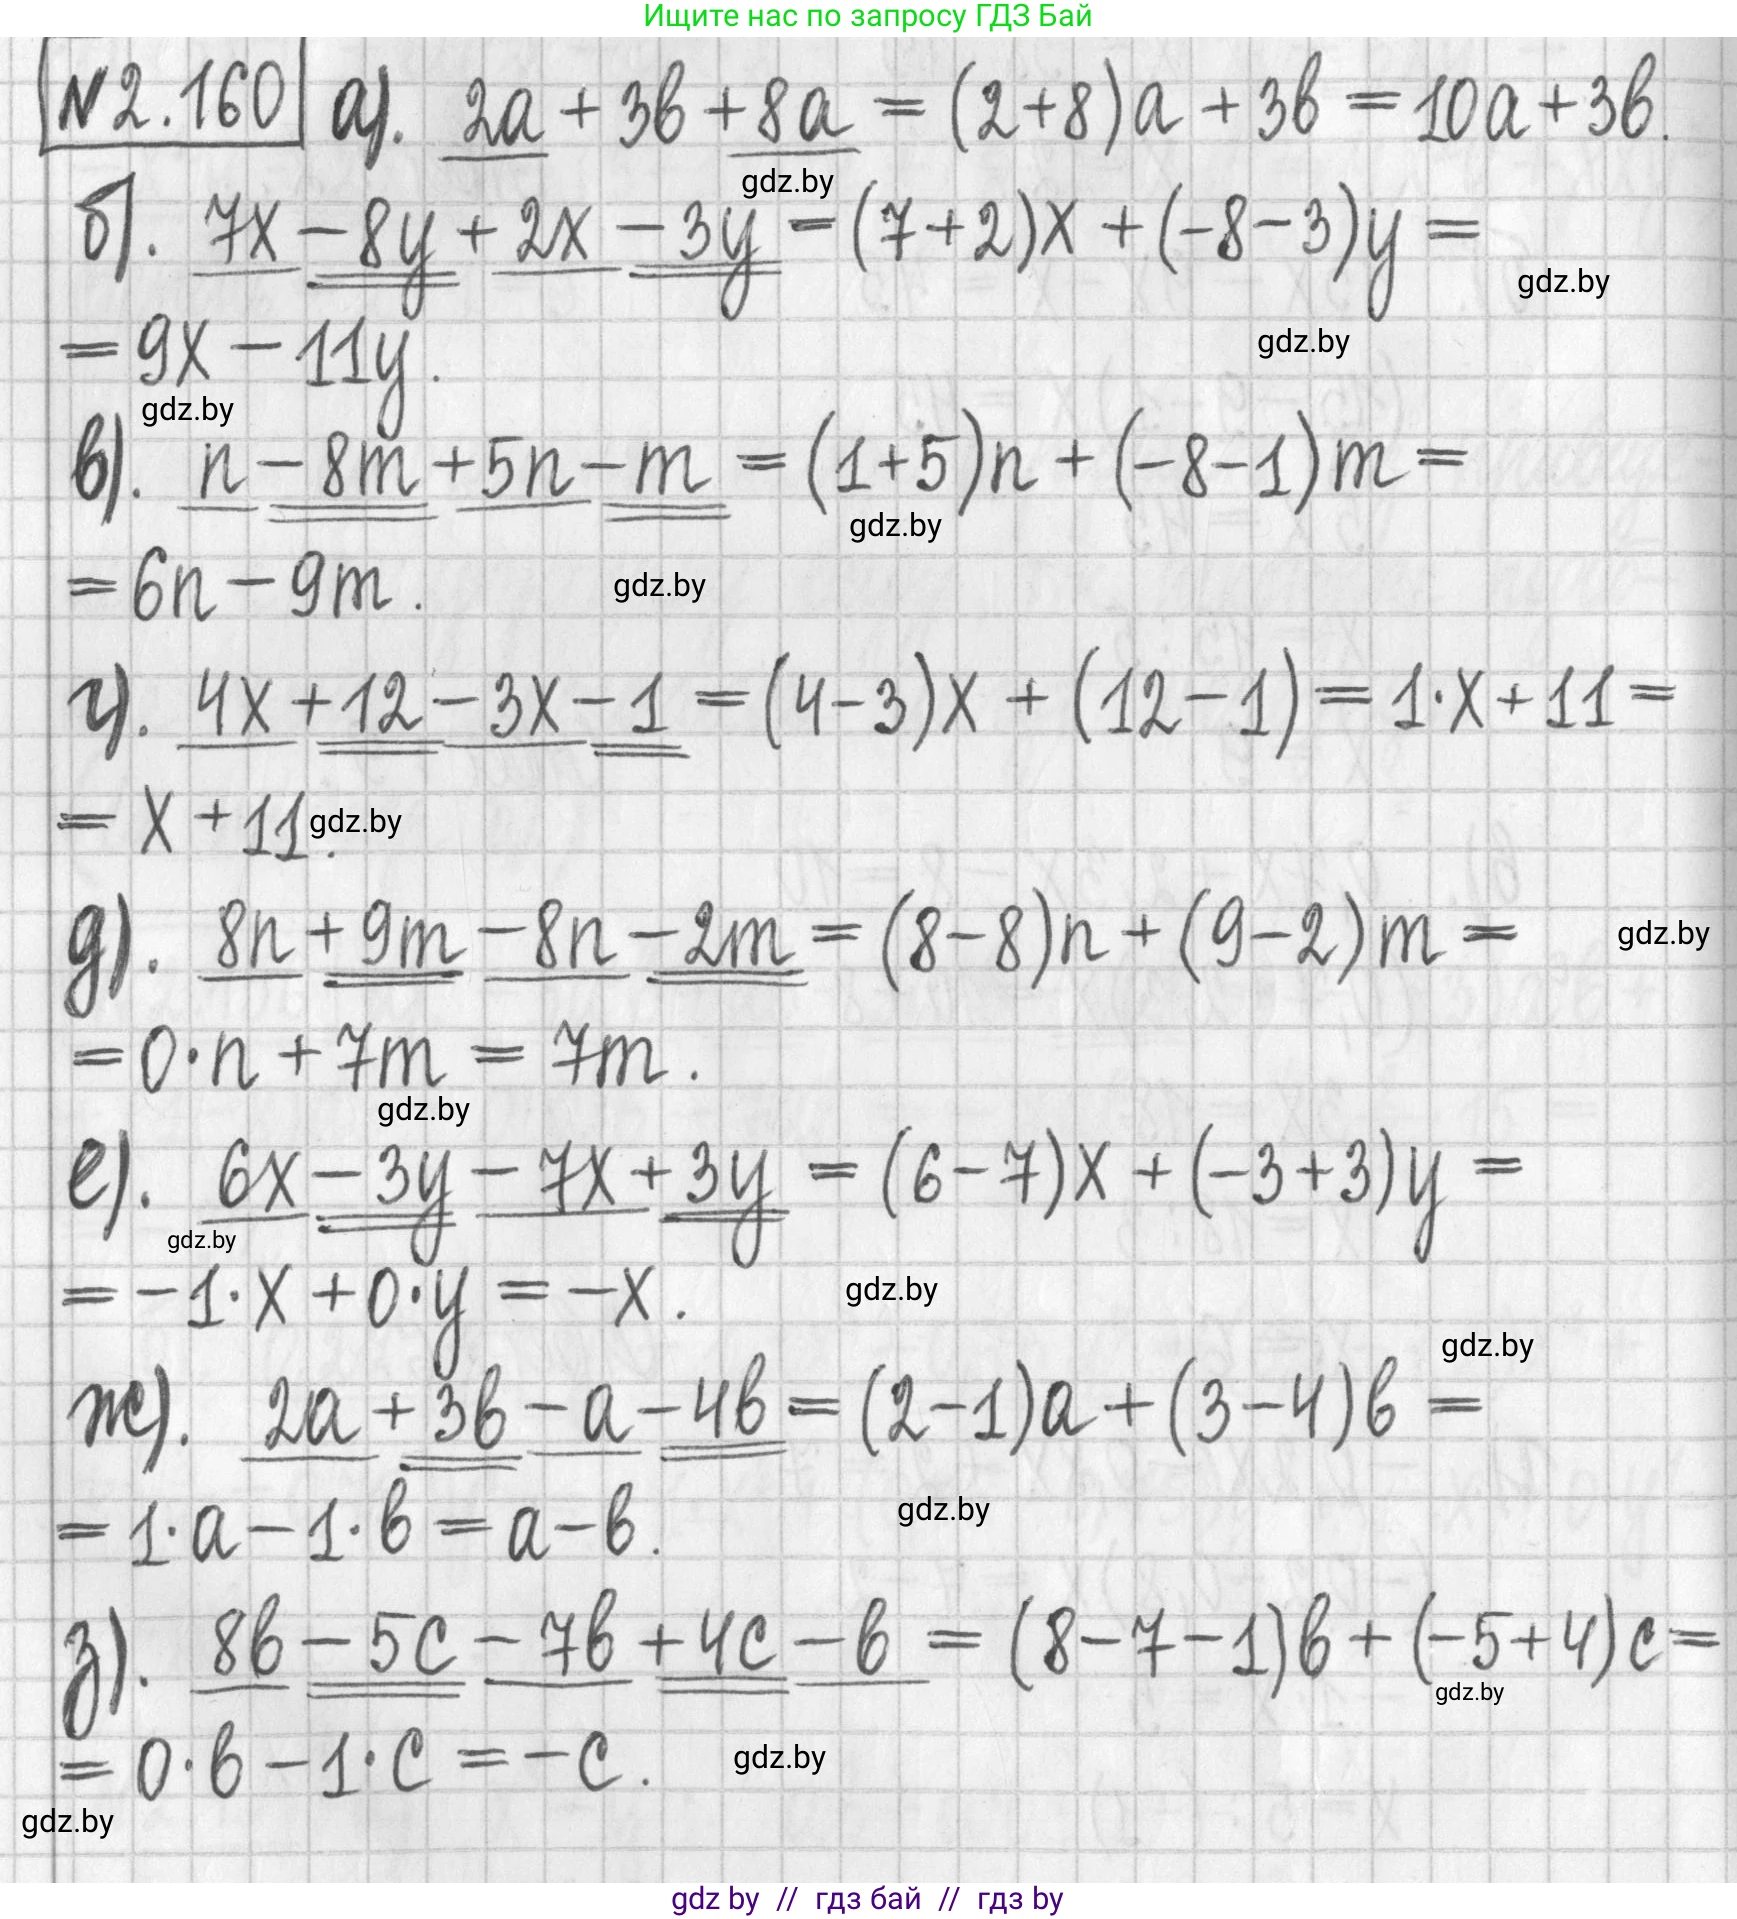 Ищите нас по запросу ГДЗ Бай
№2.160 а). 2a + 3b + 8a = (2+8)a + 3b = 10a + 3b.
gdz.by
б). 7x - 8y + 2x - 3y = (7+2)x + (-8-3)y =
gdz.by
= 9x - 11y.
gdz.by
gdz.by
в). n - 8m + 5n - m = (1+5)n + (-8-1)m =
gdz.by
= 6n - 9m.
gdz.by
г). 4x + 12 - 3x - 1 = (4-3)x + (12-1) = 1·x + 11 =
= x + 11.
gdz.by
д). 8n + 9m - 8n - 2m = (8-8)n + (9-2)m =
gdz.by
= 0·n + 7m = 7m.
gdz.by
е). 6x - 3y - 7x + 3y = (6-7)x + (-3+3)y =
gdz.by
= -1·x + 0·y = -x.
gdz.by
gdz.by
ж). 2a + 3b - a - 4b = (2-1)a + (3-4)b =
= 1·a - 1·b = a - b.
gdz.by
з). 8b - 5c - 7b + 4c - b = (8-7-1)b + (-5+4)c =
gdz.by
= 0·b - 1·c = -c.
gdz.by
gdz.by
gdz by // гдз бай // гдз by